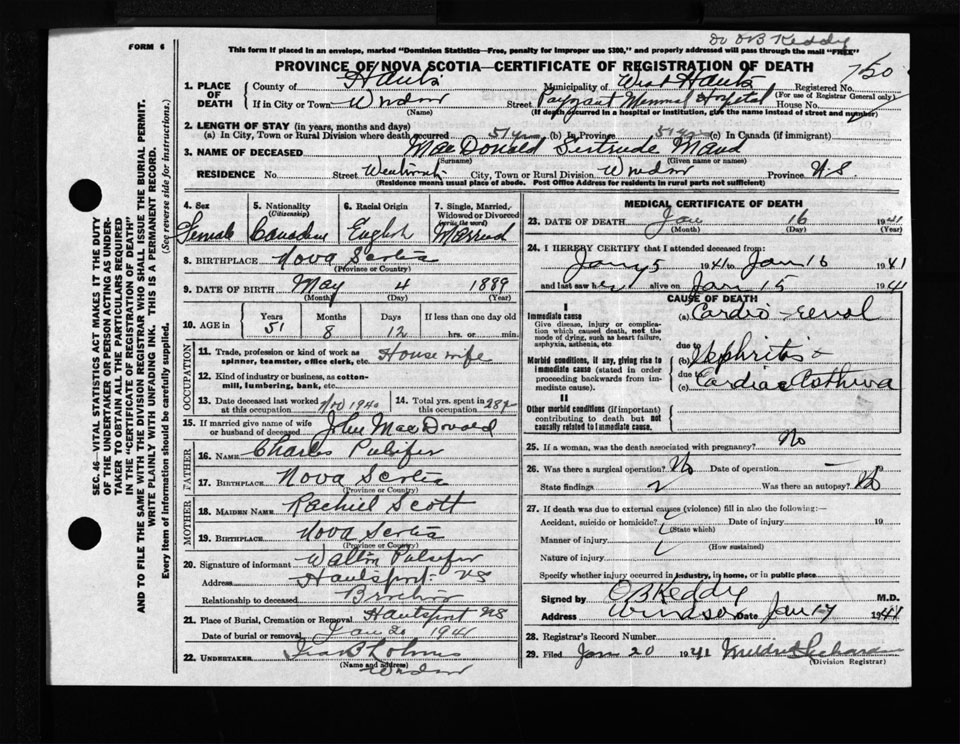 FORM 6
Dr OB Keddy
This form if placed in an envelope, marked "Dominion Statistics—Free, penalty for improper use $300," and properly addressed will pass through the mail "FREE"
PROVINCE OF NOVA SCOTIA—CERTIFICATE OF REGISTRATION OF DEATH
1. PLACE OF DEATH
County of Hants Municipality of West Hants Registered No. 750
(For use of Registrar General only)
If in City or Town Windsor Street Payzant Memorial Hospital House No.
(Name) (If death occurred in a hospital or institution, give the name instead of street and number)
2. LENGTH OF STAY (in years, months and days)
(a) In City, Town or Rural Division where death occurred 51 yrs (b) In Province 51 yrs (c) In Canada (if immigrant)
3. NAME OF DECEASED MacDonald Gertrude Maud
(Surname) (Given name or names)
RESIDENCE No. Street Wentworth City, Town or Rural Division Windsor Province N.S.
(Residence means usual place of abode. Post Office Address for residents in rural parts not sufficient)
4. Sex Female
5. Nationality (Citizenship) Canadian
6. Racial Origin English
7. Single, Married, Widowed or Divorced (write the word) Married
8. BIRTHPLACE Nova Scotia
(Province or Country)
9. DATE OF BIRTH May 4 1889
(Month) (Day) (Year)
10. AGE in Years Months Days If less than one day old
51 8 12 hrs. or min.
OCCUPATION
11. Trade, profession or kind of work as spinner, teamster, office clerk, etc. House wife
12. Kind of industry or business, as cotton-mill, lumbering, bank, etc.
13. Date deceased last worked at this occupation Nov 1940
14. Total yrs. spent in this occupation 28 yr
15. If married give name of wife or husband of deceased John MacDonald
FATHER
16. NAME Charles Pulsifer
17. BIRTHPLACE Nova Scotia
(Province or Country)
MOTHER
18. MAIDEN NAME Rachiel Scott
19. BIRTHPLACE Nova Scotia
(Province or Country)
20. Signature of informant Pulsifer
Address Hantsport NS
Relationship to deceased Brother
21. Place of Burial, Cremation or Removal Hantsport NS
Date of burial or removal Jan 20 1941
22. UNDERTAKER
(Name and address)
Windsor
MEDICAL CERTIFICATE OF DEATH
23. DATE OF DEATH Jan 16 1941
(Month) (Day) (Year)
24. I HEREBY CERTIFY that I attended deceased from:
Jany 5 1941 to Jan 16 1941
and last saw her alive on Jan 15 1941
CAUSE OF DEATH
I
Immediate cause
Give disease, injury or complication which caused death, not the mode of dying, such as heart failure, asphyxia, asthenia, etc.
(a) Cardio-renal
due to
Morbid conditions, if any, giving rise to immediate cause (stated in order proceeding backwards from immediate cause).
(b) Nephritis &
due to
(c) Cardiac Asthma
II
Other morbid conditions (if important) contributing to death but not causally related to immediate cause.
25. If a woman, was the death associated with pregnancy? No
26. Was there a surgical operation? No Date of operation — 19
State findings Was there an autopsy? No
27. If death was due to external causes (violence) fill in also the following:—
Accident, suicide or homicide? Date of injury 19
(State which)
Manner of injury
(How sustained)
Nature of injury
Specify whether injury occurred in industry, in home, or in public place
Signed by OB Keddy M.D.
Address Windsor Date Jan 17 1941
28. Registrar's Record Number
29. Filed Jan 20 1941 Mildred
(Division Registrar)
SEC. 46—VITAL STATISTICS ACT MAKES IT THE DUTY
OF THE UNDERTAKER OR PERSON ACTING AS UNDER-
TAKER TO OBTAIN ALL THE PARTICULARS REQUIRED
IN THE "CERTIFICATE OF REGISTRATION OF DEATH"
AND TO FILE THE SAME WITH THE DIVISION REGISTRAR WHO SHALL ISSUE THE BURIAL PERMIT.
WRITE PLAINLY WITH UNFADING INK. THIS IS A PERMANENT RECORD.
Every item of information should be carefully supplied. (See reverse side for instructions.)